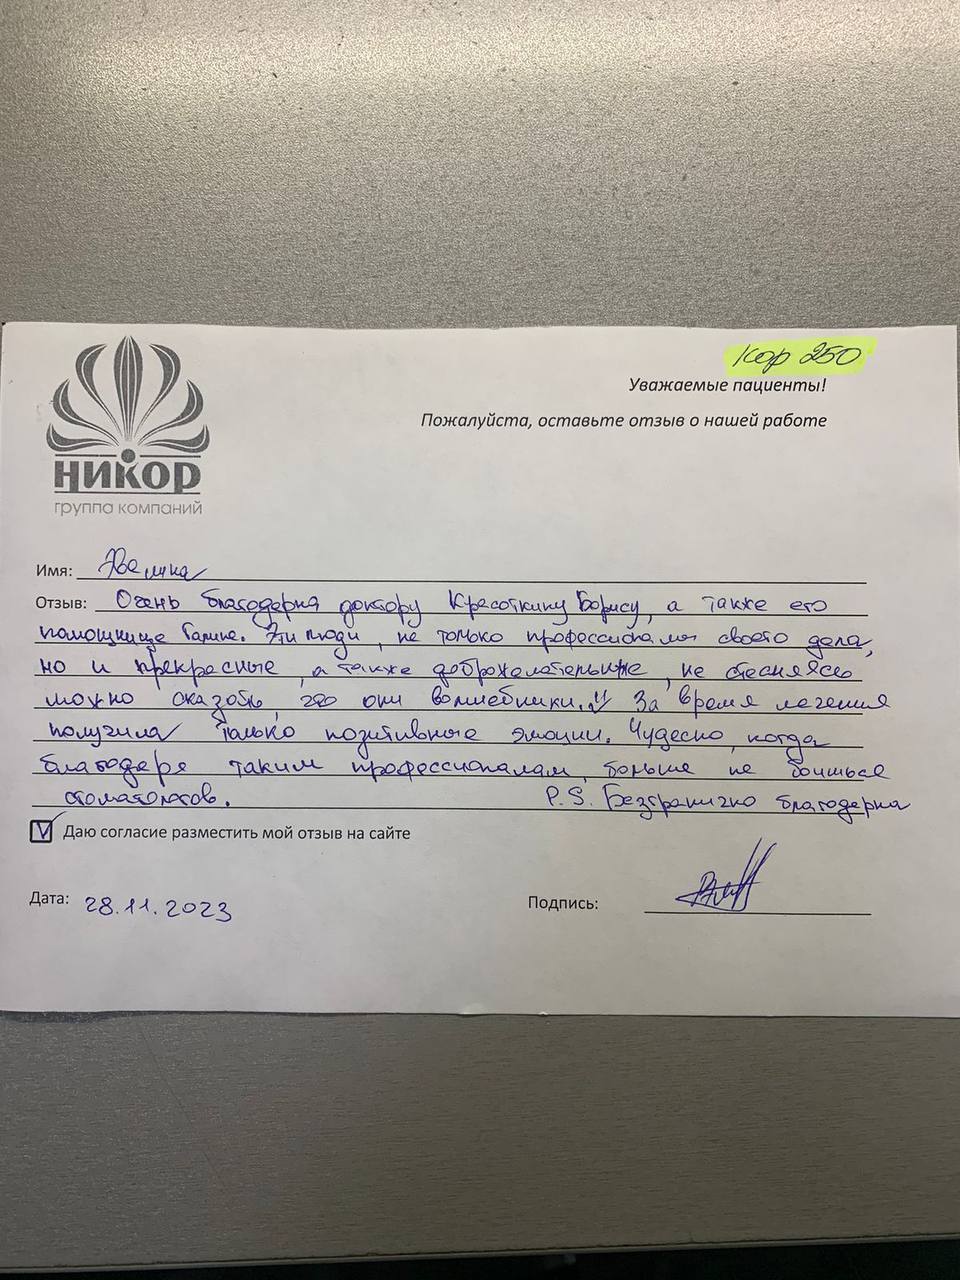 Кор 250
Уважаемые пациенты!
Пожалуйста, оставьте отзыв о нашей работе
НИКОР
группа компаний
Имя: Эвелина
Отзыв: Очень благодарна доктору Кресоткину Борису, а также его
помощнице Галине. Эти люди, не только профессионалы своего дела,
но и прекрасные, а также доброжелательные, не стесняясь
можно сказать, что они волшебники.!! За время лечения
получила только позитивные эмоции. Чудесно, когда
благодаря таким профессионалам, больше не боишься
стоматологов. P.S. Безгранично благодарна
Даю согласие разместить мой отзыв на сайте
Дата: 28.11.2023
Подпись: